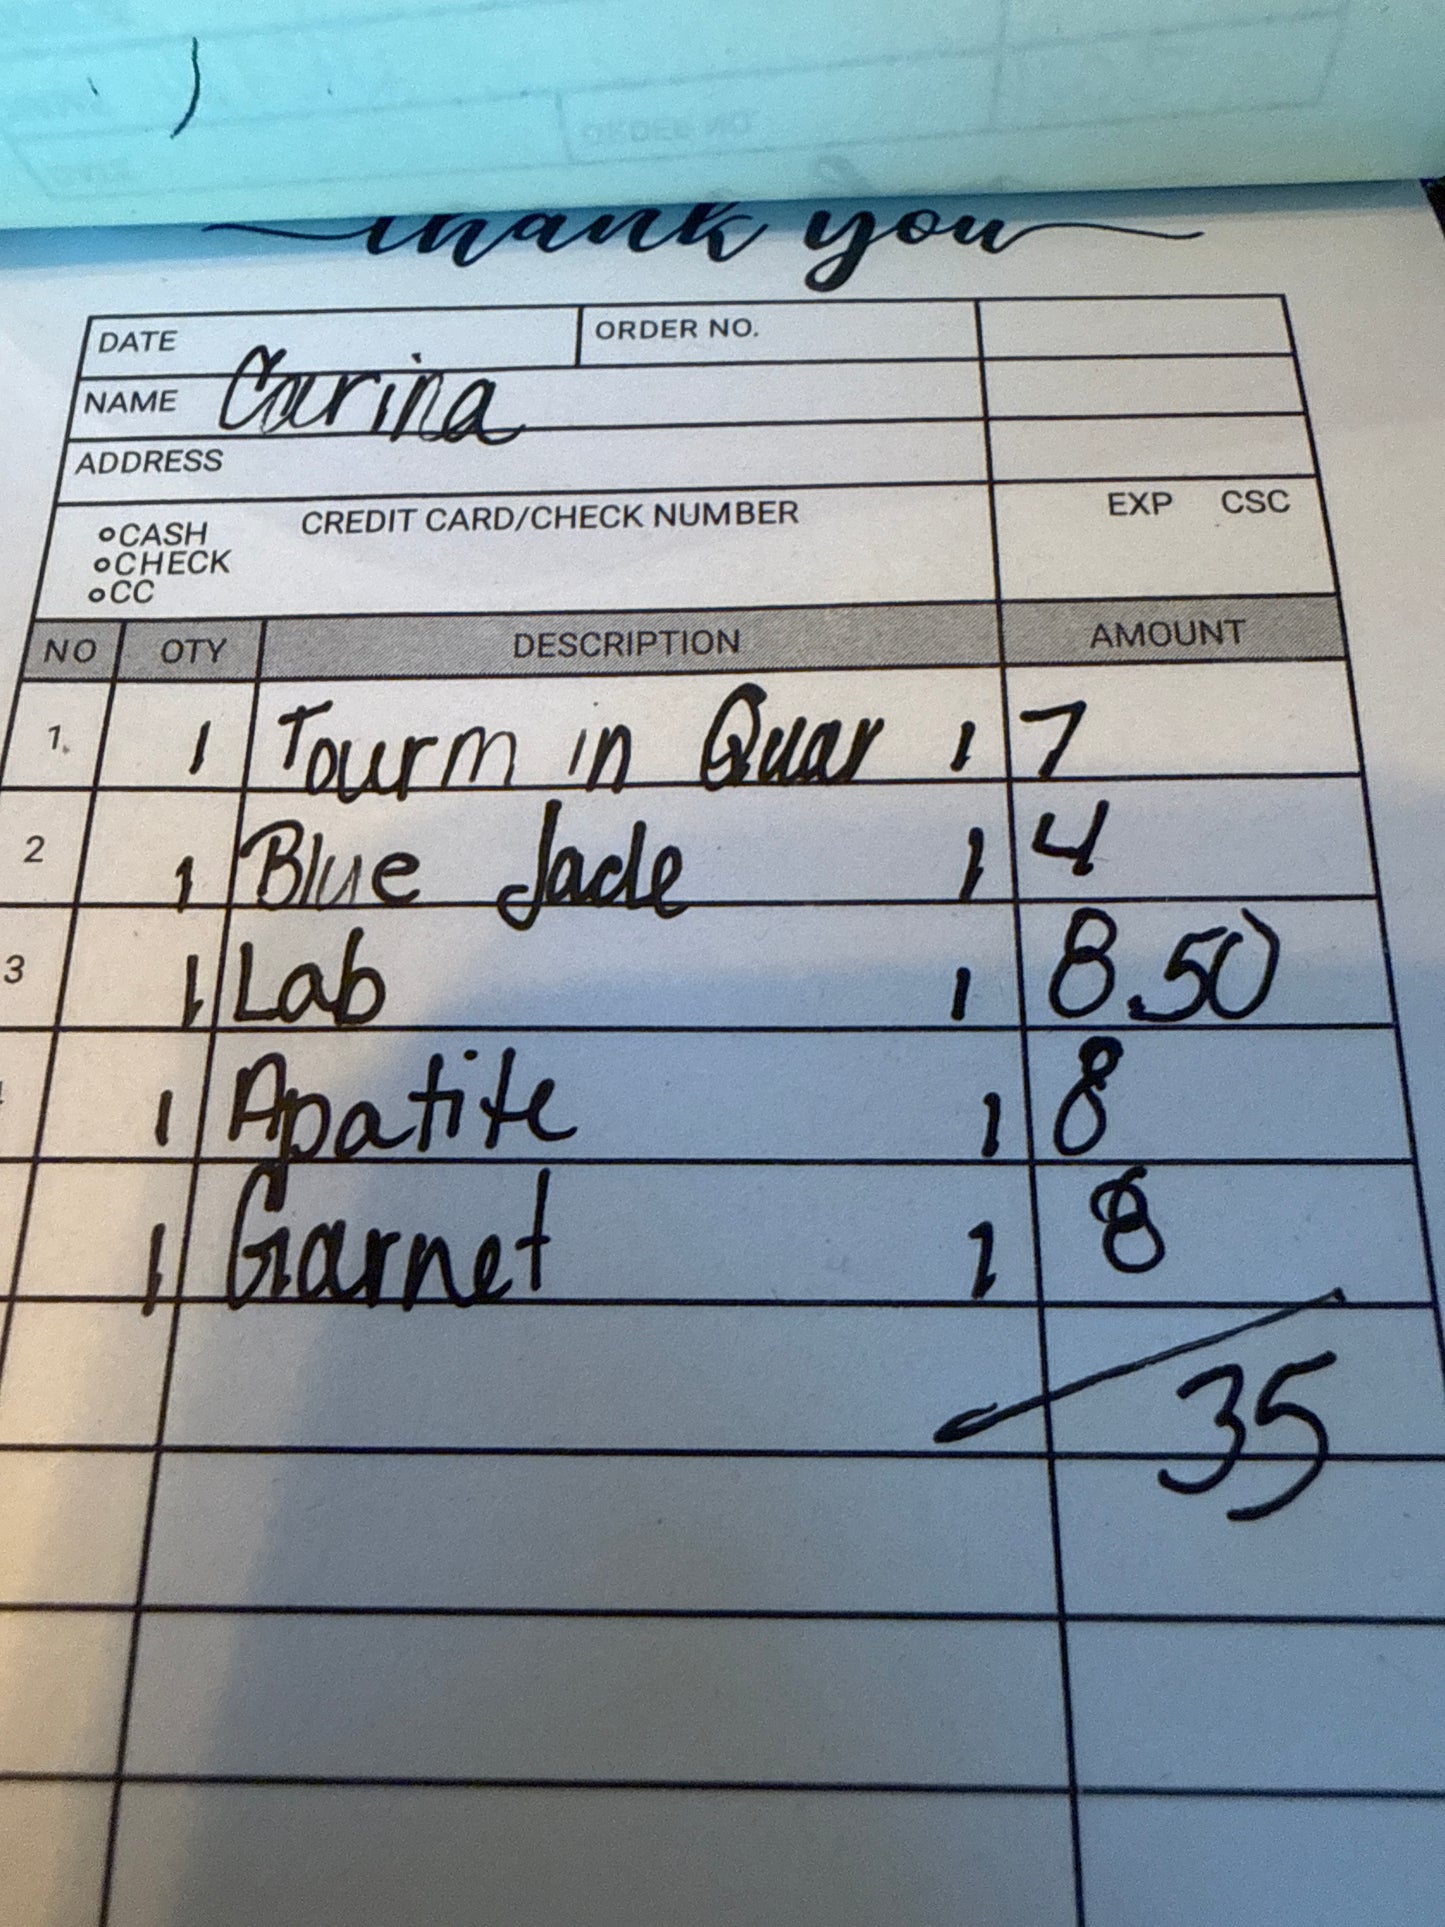 thank you
DATE ORDER NO.
NAME Carina
ADDRESS
CASH CREDIT CARD/CHECK NUMBER EXP CSC
CHECK
CC
NO QTY DESCRIPTION AMOUNT
1. 1 Tourm in Quar 1 7
2 1 Blue Jade 1 4
3 1 Lab 1 8.50
1 Apatite 1 8
1 Garnet 1 8
35